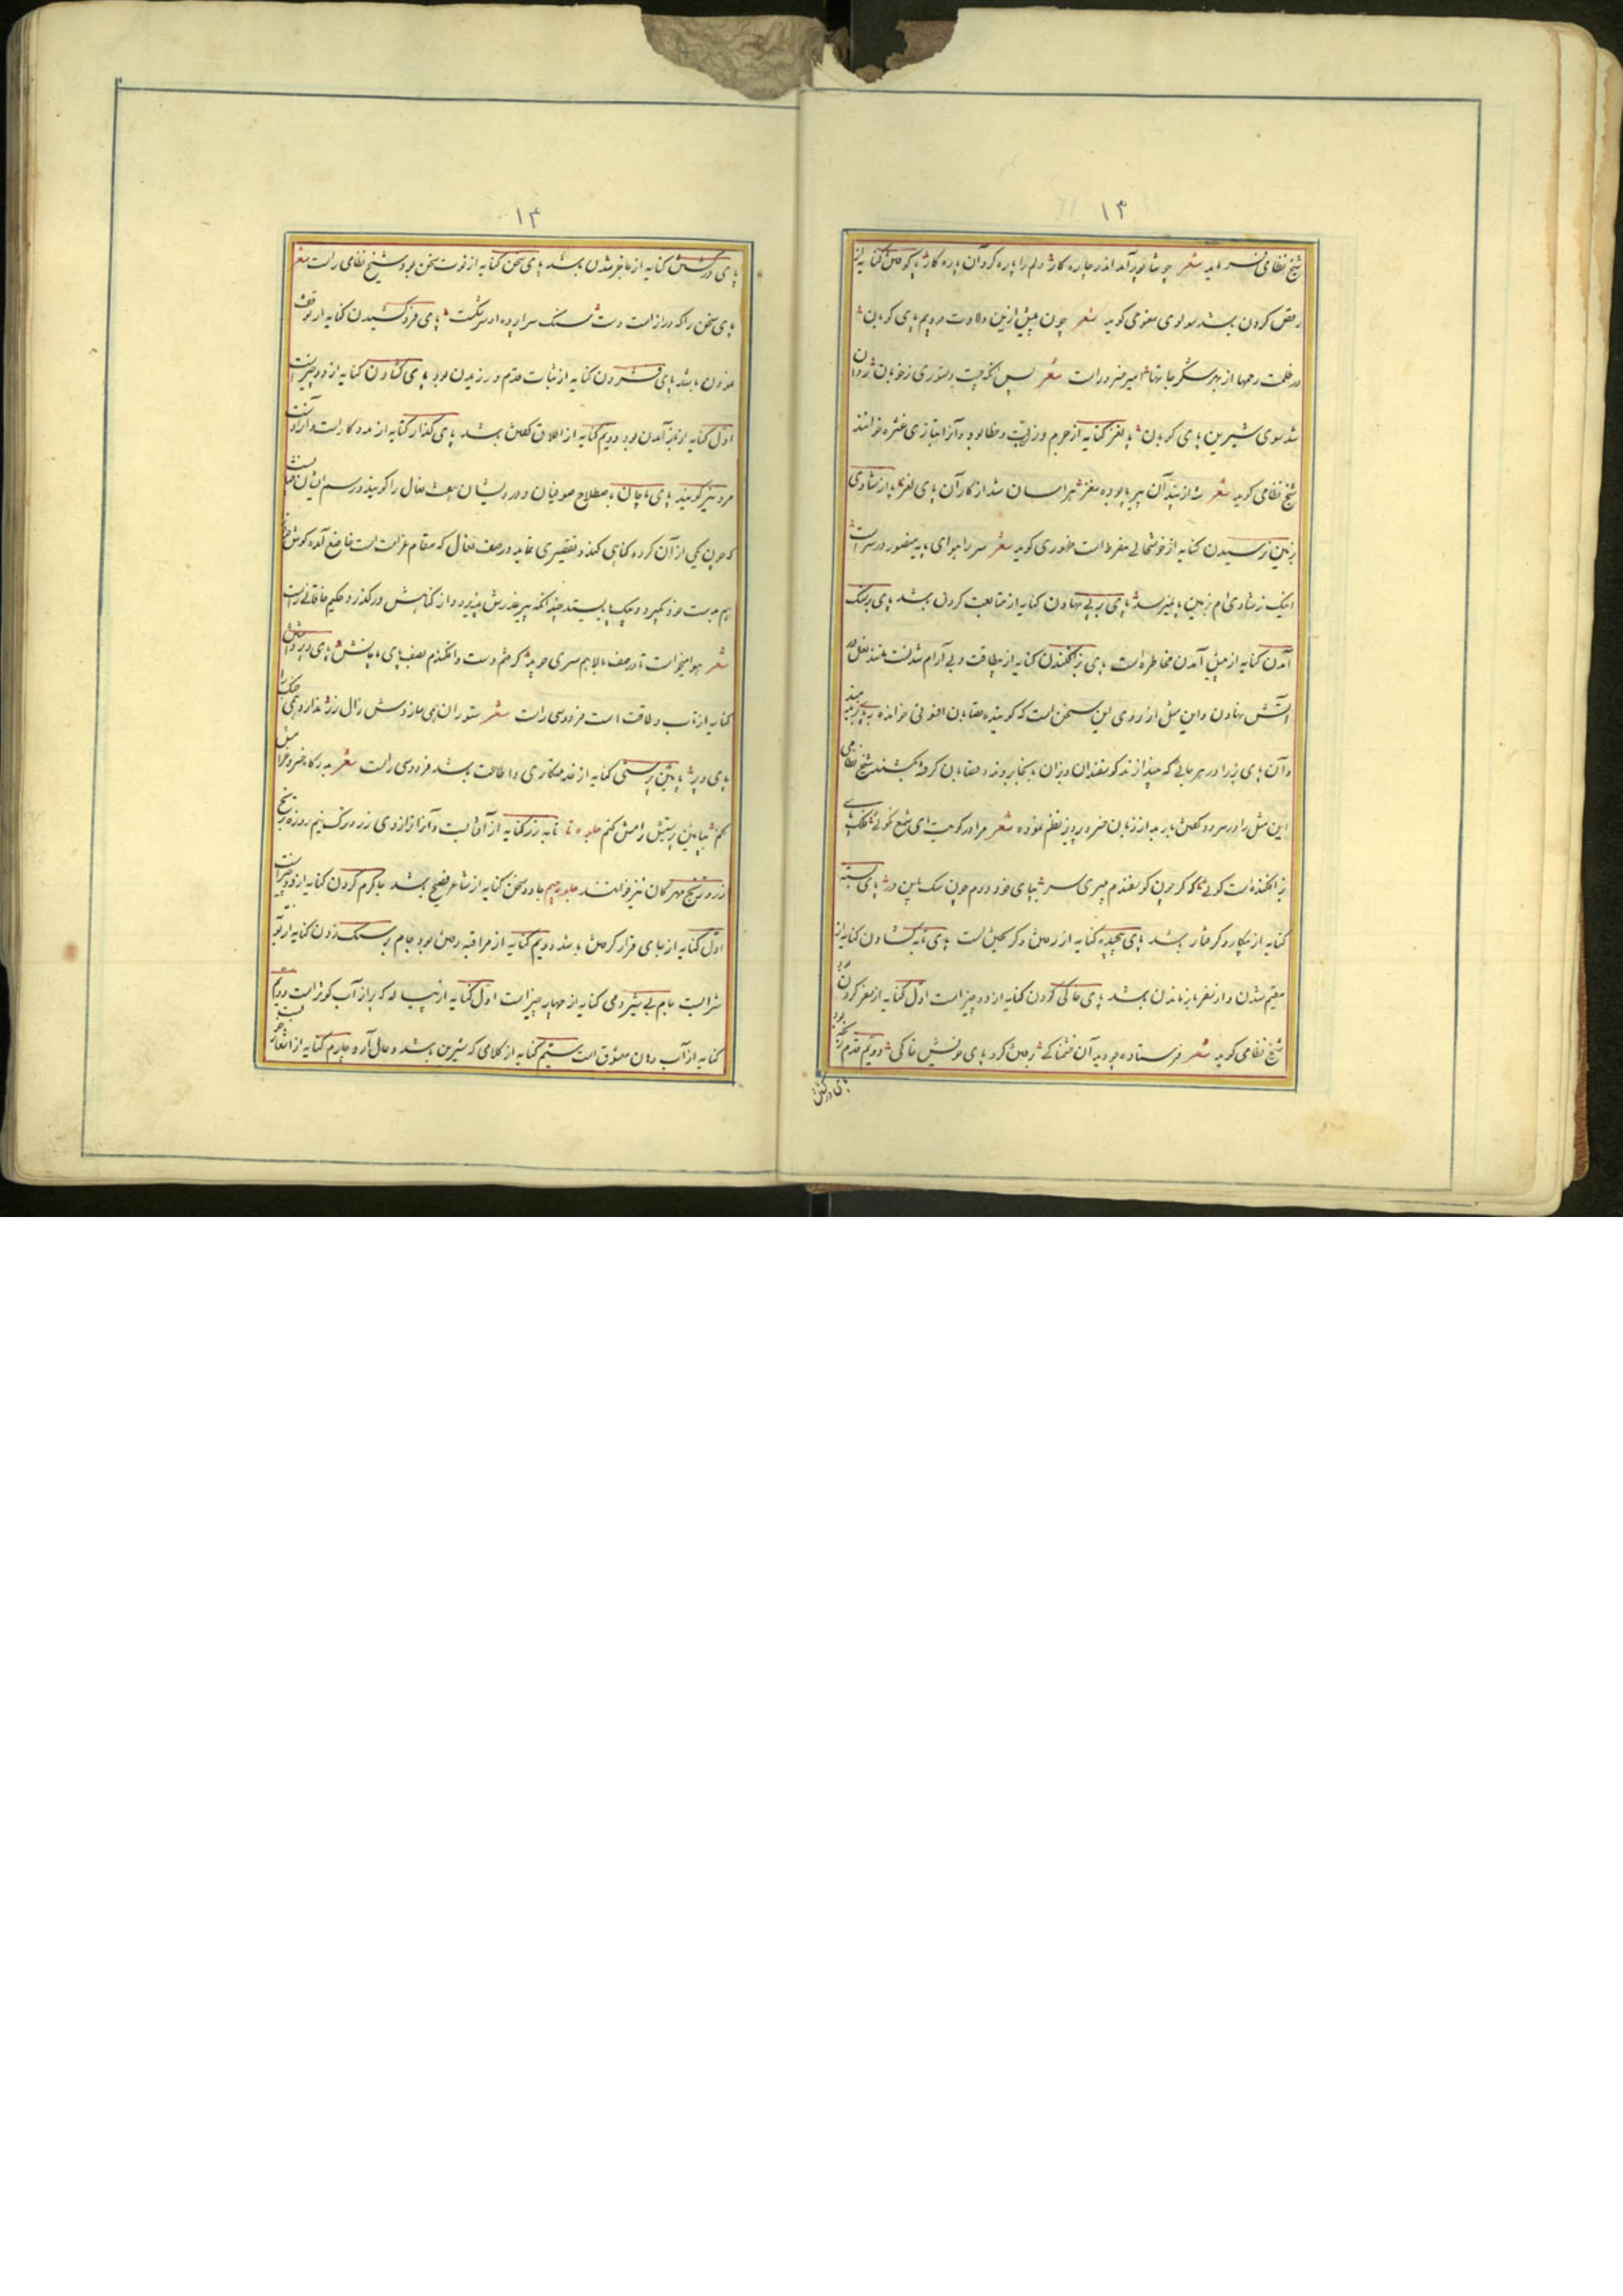 ۱۳
شیخ نظامی فرماید شعر چو شاپور آمد اندر چاره کار دلم را پاره کرد آن پاره کار پا کوفتن کنایه از
رقص کردن باشد مولوی معنوی گوید شعر چون پیش ازین ولادت بودیم پای کوبان
در ظلمت رحمها از بهر شکر جانها امیر خسرو راست شعر پس آنکه جست دستوری ز خوبان روان
شد سوی شیرین پای کوبان پا لغز کنایه از جرم و زلت و خطا بود و آنرا بتازی عثره خوانند
شیخ نظامی گوید شعر شه از پند آن پیر پالوده مغز هراسان شد از کار آن پای لغز پا از شادی
بزمین نرسیدن کنایه از خوشحالی مفرط است ظهوری گوید شعر سر را هوای پایه منصور در سر است
اینک ز شادی ام بزمین پا نمیرسد پای بر پی نهادن کنایه از متابعت کردن باشد پای بر سنک
آمدن کنایه از پیش آمدن مخاطره است پای بز افکندن کنایه از بیطاقت و بی آرام شدنست مانند نعل در
آتش نهادن و این مثل از روی این سخن است که گویند قصابان افسونی خوانده بر پای بز دمند
و آن پای بز را در هر جائی که بیندازند گوسفندان و بزان بآنجا روند و قصابان گرفته بکشند شیخ نظامی
این مثل را در سرود گفتن باربد از زبان خسرو پرویز نظم نموده شعر مرا در کویت ای شمع نکوئی فلک پای
بز افکنده است گوئی که گر چون گوسفندم میبری سر بپای خود دوم چون سک بر این در پای بسته
کنایه از بیکار و گرفتار باشد پای پیچیده کنایه از رفتن و گریختن است پای تابه گشادن کنایه از
مقیم شدن و از سفر باز ماندن باشد پای خاکی کردن کنایه از دو چیز است اول کنایه از سفر کردن بود
شیخ نظامی گوید شعر فرستاده چو دید آن خشمناکی برفتن کرد پای خویش خاکی دویم قدم رنجه
پای در کش
۱۴
پای در کش کنایه از عاجز شدن باشد پای سخن کنایه از قوت سخن بود شیخ نظامی راست شعر
پای سخن را که درازست دست سنک سراپرده او سر شکست پای فرو کشیدن کنایه از توقف
نمودن باشد پای فشردن کنایه از ثبات قدم ورزیدن بود پای گشادن کنایه از دو چیز است
اول کنایه از باز آمدن بود دویم کنایه از طلاق گفتن باشد پای گذار کنایه از مددکار است و آنرا دست
مرد نیز گویند پای ماچان باصطلاح صوفیان و درویشان صف نعال را گویند و رسم ایشان چنانست
که چون یکی از آن گروه گناهی کند و تقصیری نماید در صف نعال که مقام غرامت است خاضع آمده گوش خود
هم بدست خود گیرد و بیک پا بایستد چندانکه پیر عذرش بپذیرد و از گناهش در گذرد حکیم خاقانی راست
شعر هوا میخواست تا در صف بالا هم سری جوید گرفتم دست و افکندم بصف پای ماچانش پای و پر داشتن
کنایه از تاب و طاقت است فردوسی راست شعر ستوران بی مایه و دست زال زر ندارد همی جنک را
پای و پر پایین پرستی کنایه از خدمتکاری و اطاعت باشد فردوسی راست شعر بدرگاه خسرو خرامش
کنم بپایین پرستیش رامش کنم جلوه تا تابه زر کنایه از آفتابست و آنرا از روی زرد و ترک نیمروز و ترنج
زر و ترنج مهرگان نیز خوانند جلوه جیم جادو سخن کنایه از شاعر فصیح باشد جا گرم کردن کنایه از دو چیز است
اول کنایه از جای قرار گرفتن باشد دویم کنایه از مراقبه رفتن بود جام بر سنگ زدن کنایه از توبه
شرابست جام بی شیر و می کنایه از چهار چیز است اول کنایه از پیاله که پر از آب کوثر است دویم
کنایه از آب دهان معشوق است سیم کنایه از کلامی که شیرین باشد و حال آرد چارم کنایه از اشعار